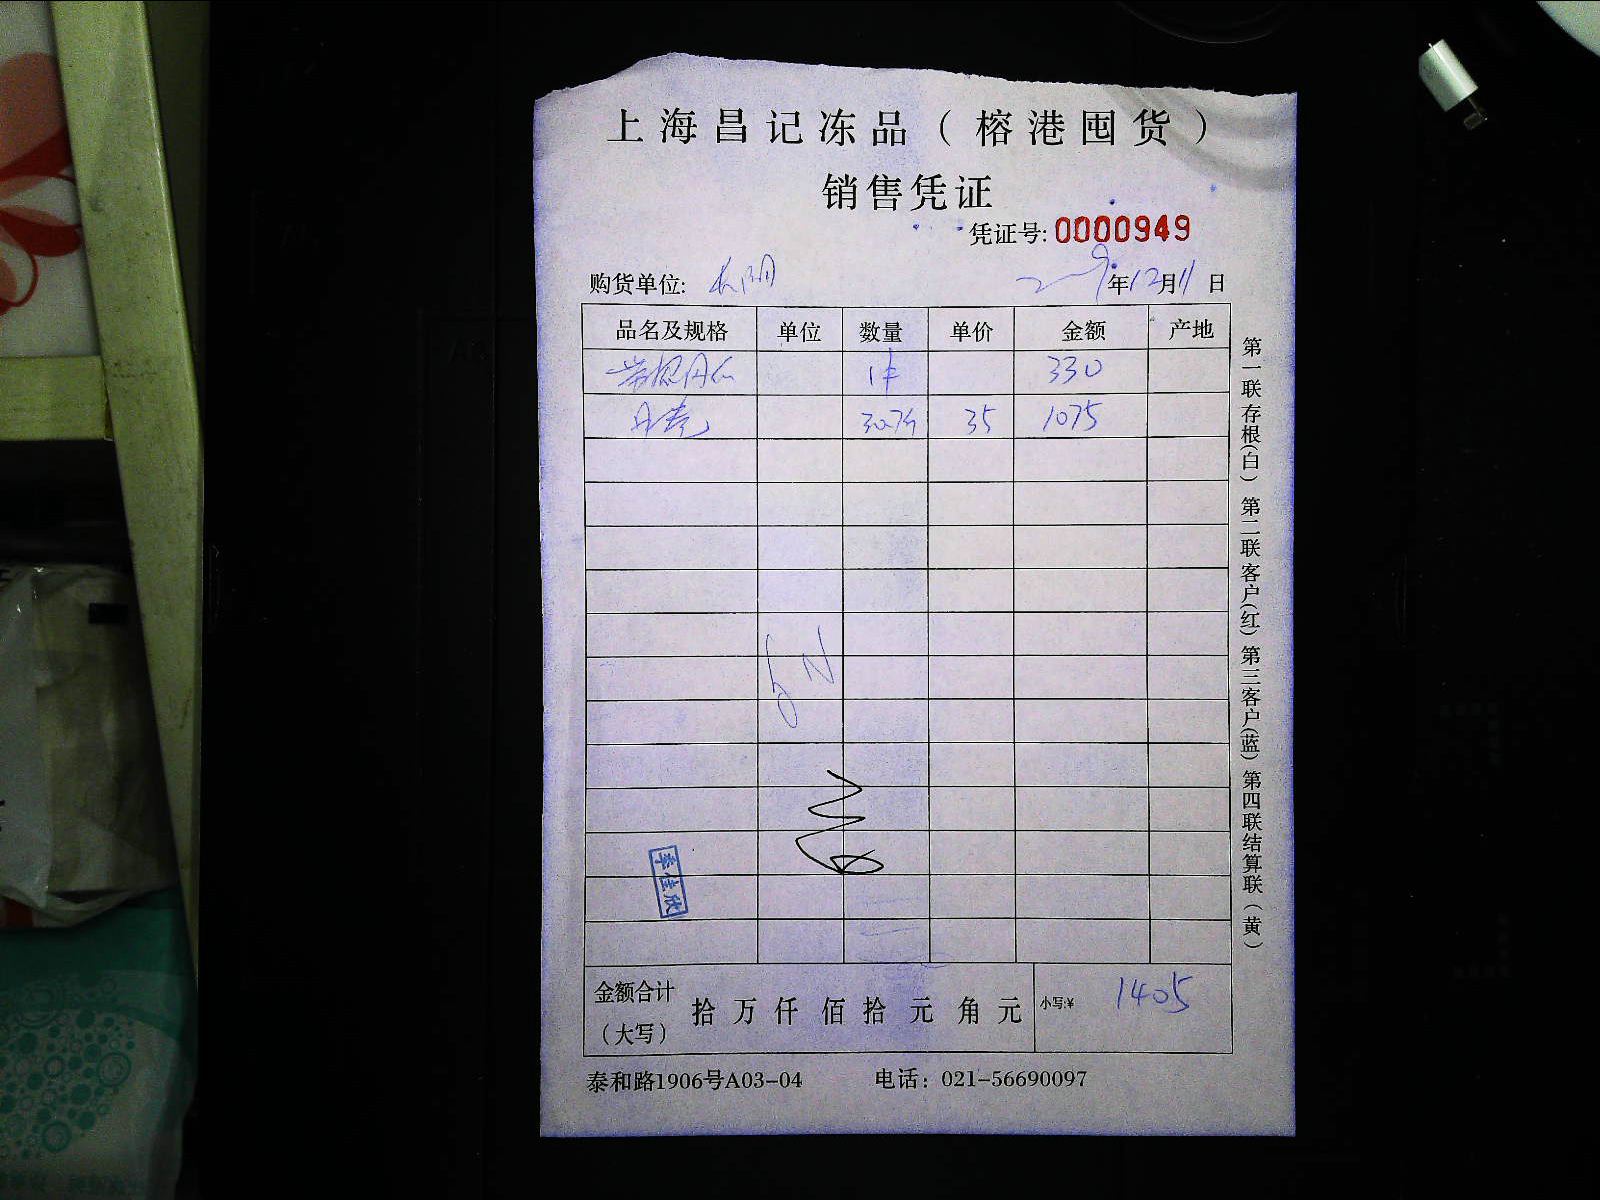 上海昌记冻品（榕港囤货）
销售凭证
凭证号: 0000949
购货单位: 2019年12月11日
品名及规格 单位 数量 单价 金额 产地
1件 330
35 1075
金额合计（大写） 拾万仟佰拾元角元 小写:¥ 1405
泰和路1906号A03-04 电话：021-56690097
第一联存根(白) 第二联客户(红) 第三客户(蓝) 第四联结算联（黄）
李佳欣